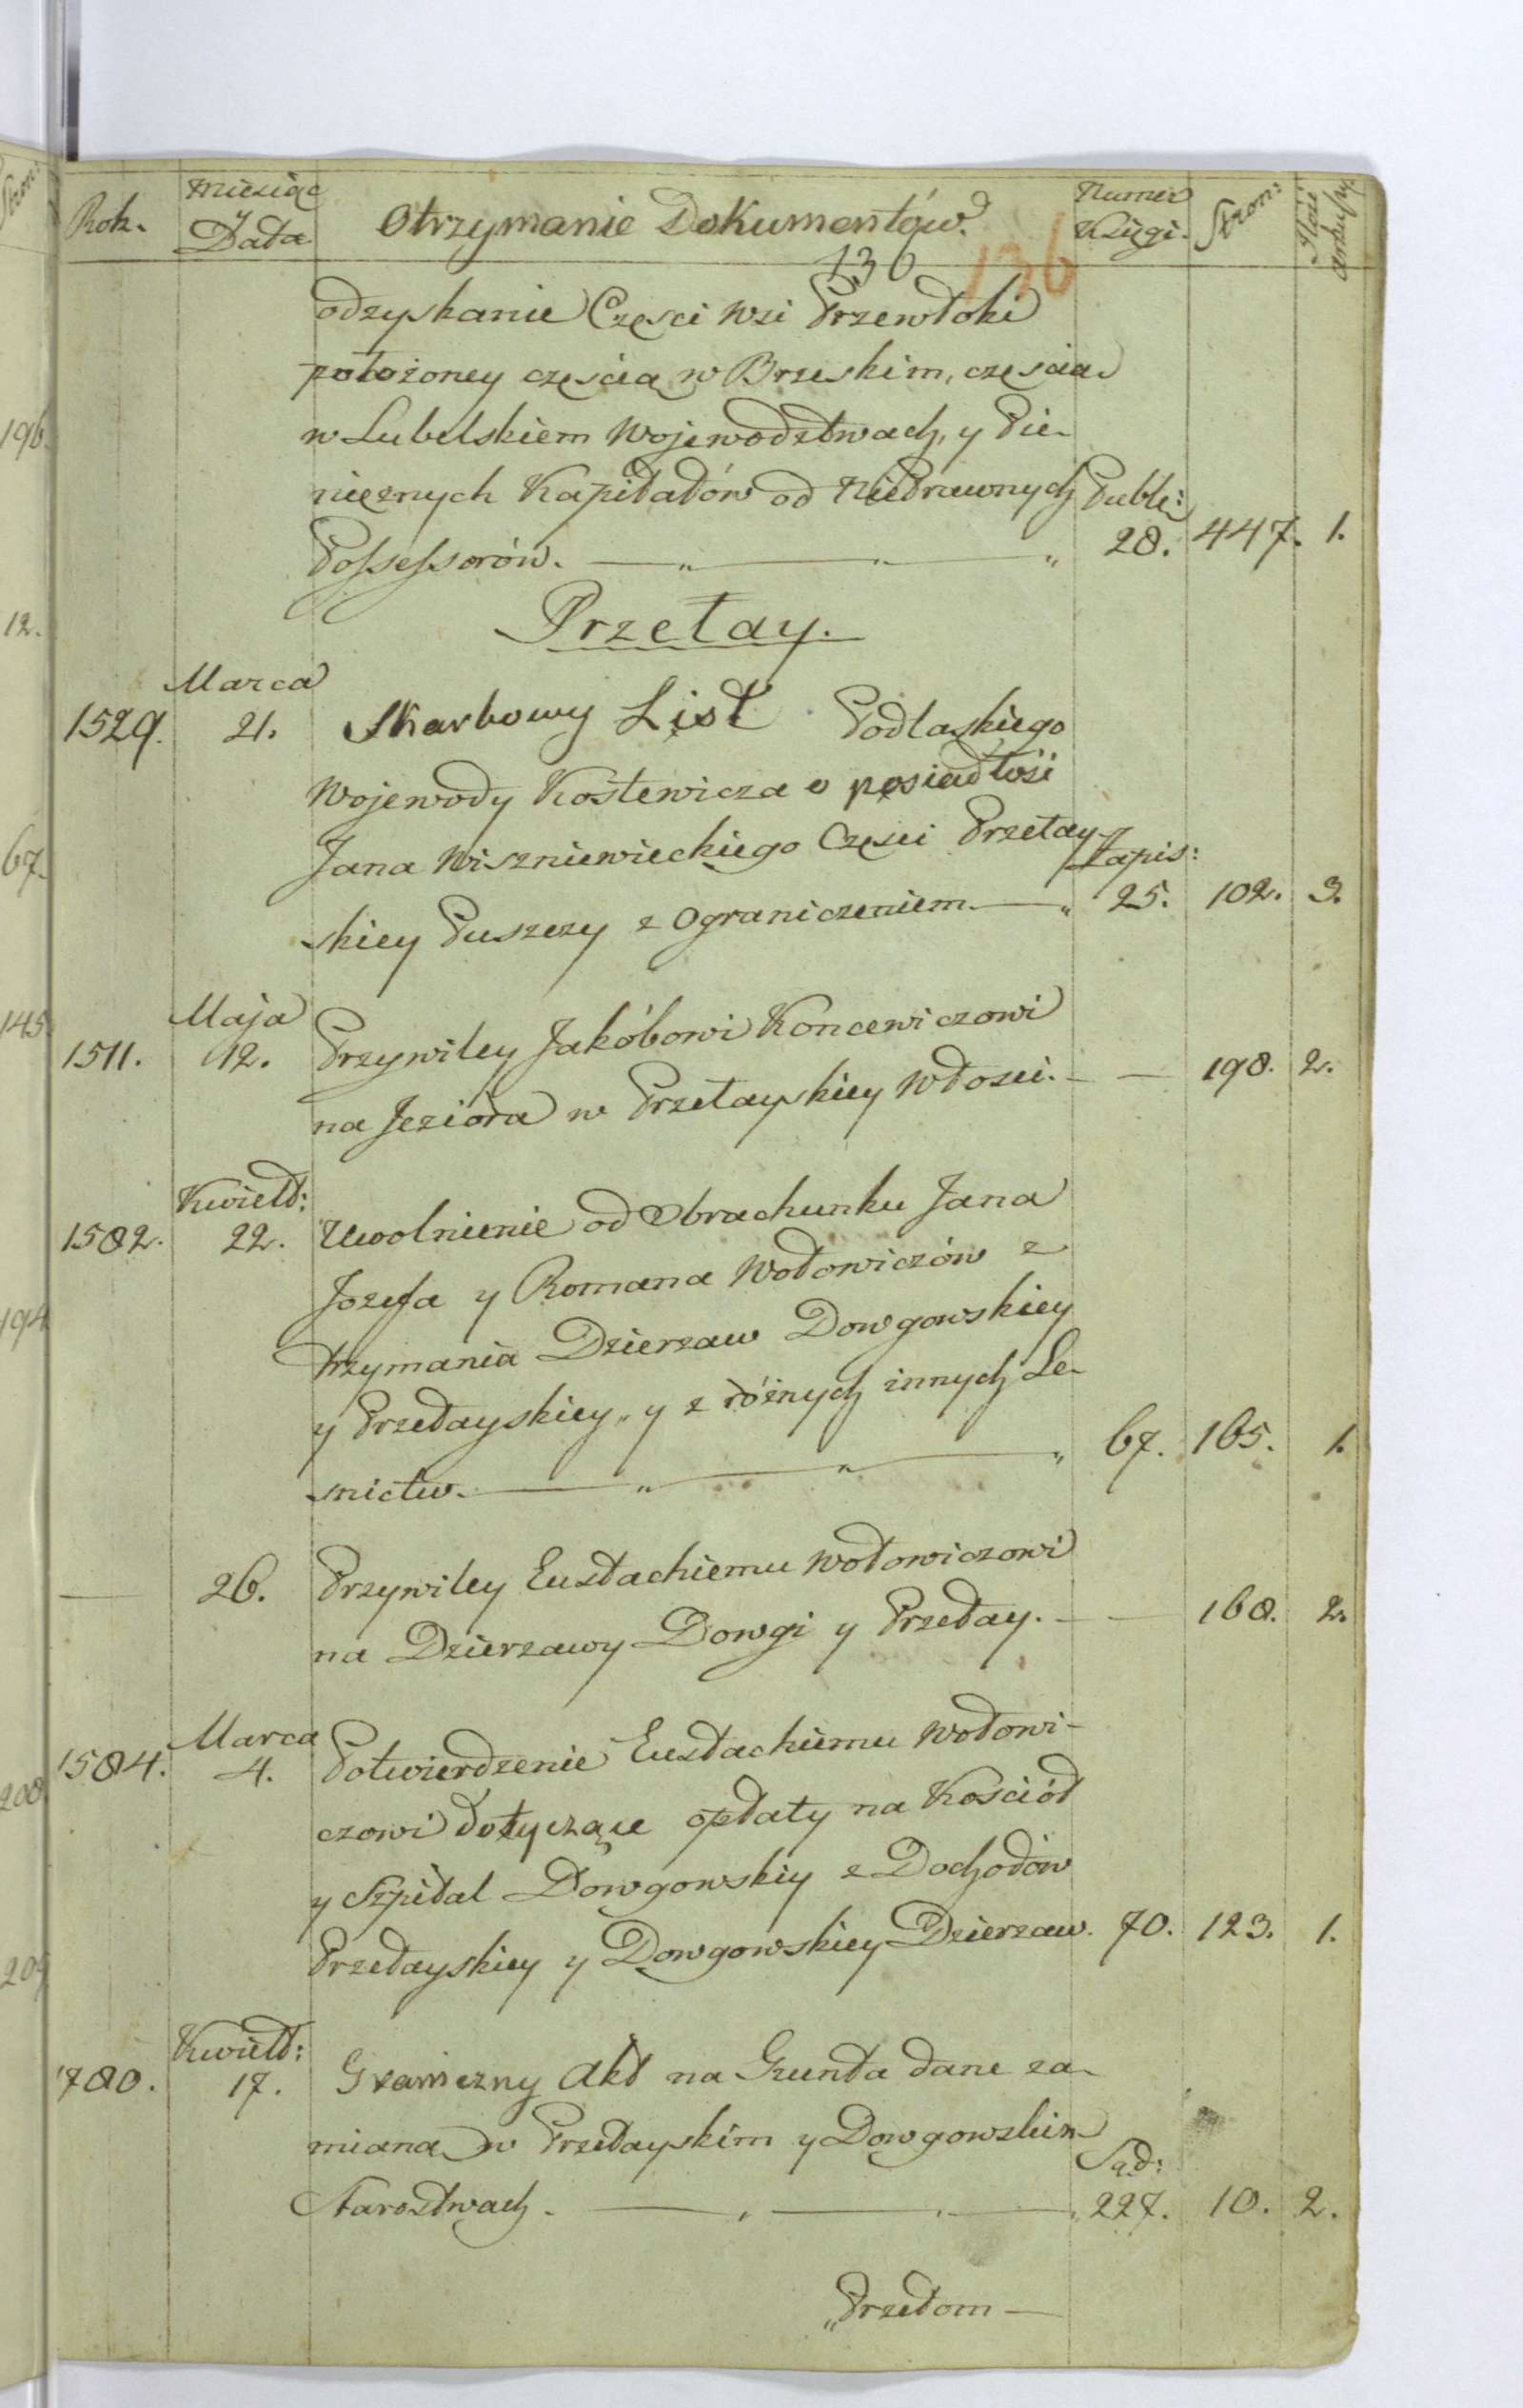 Rok. Miesiąc y Data. Otrzymanie Dokumentów. Numer Księgi. Stron: Ilość arkuszy.
136 136
odzyskanie Częsci wsi Przewłoki
położoney częscią w Brzeskim, częscią
w Lubelskiem Wojewodztwach, y Pie-
nięznych Kapitałów od Nieprawnych Publi:
Possessorów. — „ — „ — „ 28. 447. 1.
Przełay.
Marca
1529. 21. Skarbowy List Podlaskiego
Wojewody Kostewicza o posiadłosi
Jana Wiszniewieckiego Częsci Przełay- Zapis:
skiey Puszczy z Ograniczeniem — „ 25. 102. 3.
Maja
1511. 12. Przywiley Jakóbowi Koncewiczowi
na Jeziora w Przełayskiey Włosci. — — 198. 2.
Kwiet:
1582. 22. Uwolnienie od Obrachunku Jana
Jozefa y Romana Wołowiczów z
trzymania Dzierzaw Dowgowskiey
y Przełayskiey „ y z różnych innych Le-
snictw. — „ — „ — „ 67. 165. 1.
— 26. Przywiley Eustachiemu Wołowiczowi
na Dzierzawy Dowgi y Przełay. — — 168. 2.
Marca
1584. 4. Potwierdzenie Eustachiemu Wołowi-
czowi dotyczące opłaty na Kosciół
y Szpital Dowgowskiy z Dochodów
Przełayskiey y Dowgowskiey Dzierzaw. 70. 123. 1.
Kwiet:
1780. 17. Graniczny Akt na Grunta dane za-
mianą w Przełayskim y Dowgowskim Sąd:
Starostwach. — „ — „ — „ 227. 10. 2.
„Przełom —